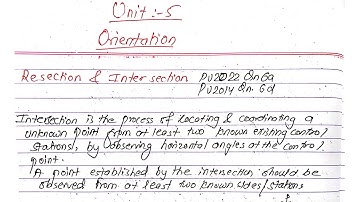 Unit :- 5
Orientation
Resection & Intersection PU2022 Qn 6a
PU2014 Qn. 6d
Intersection is the process of locating & coordinating a
unknown point from at least two known existing control
stations), by observing horizontal angles at the control
point.
A point established by the intersection should be
observed from at least two known sites/stations